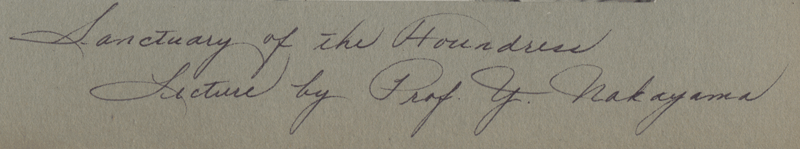 Sanctuary of the Foundress
Lecture by Prof. Y. Nakayama